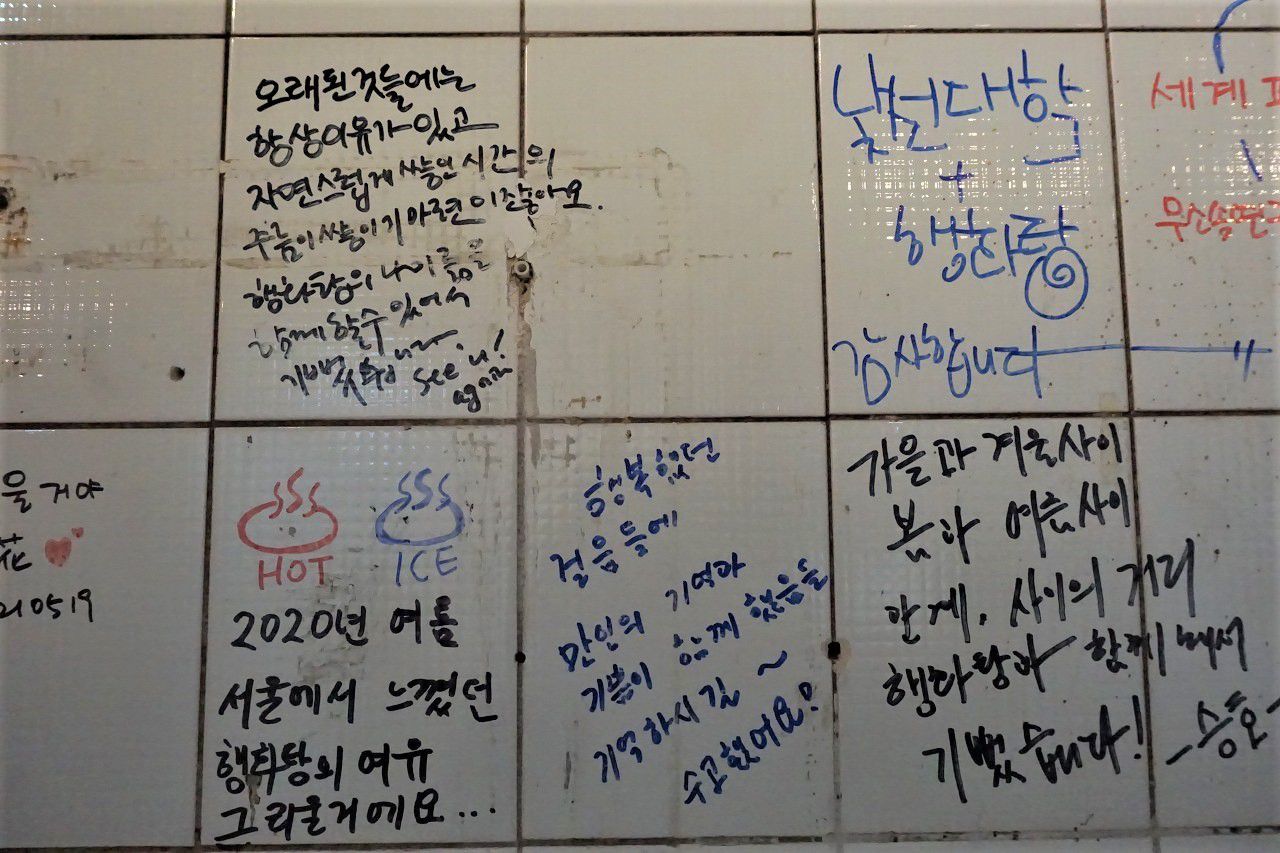 오래된것들에는
항상이유가 있고
자연스럽게 쌓인 시간의
주름이 쌓이기 마련이잖아요.
행화탕의 나이듦을
함께 할수 있어서
기뻤습니다. see u!
again
낯선대학
+
행화탕
감사합니다 〃
세계
가을과 겨울사이
봄과 여름사이
관계, 사이의 거리
행화탕과 함께해서
기뻤습니다! -승호-
행복했던
걸음들에
만인의 기억과
기쁨이 함께 했음을
기억하시길 ~
수고했어요!
HOT ICE
2020년 여름
서울에서 느꼈던
행화탕의 여유
그리울거에요...
울 거야
210519